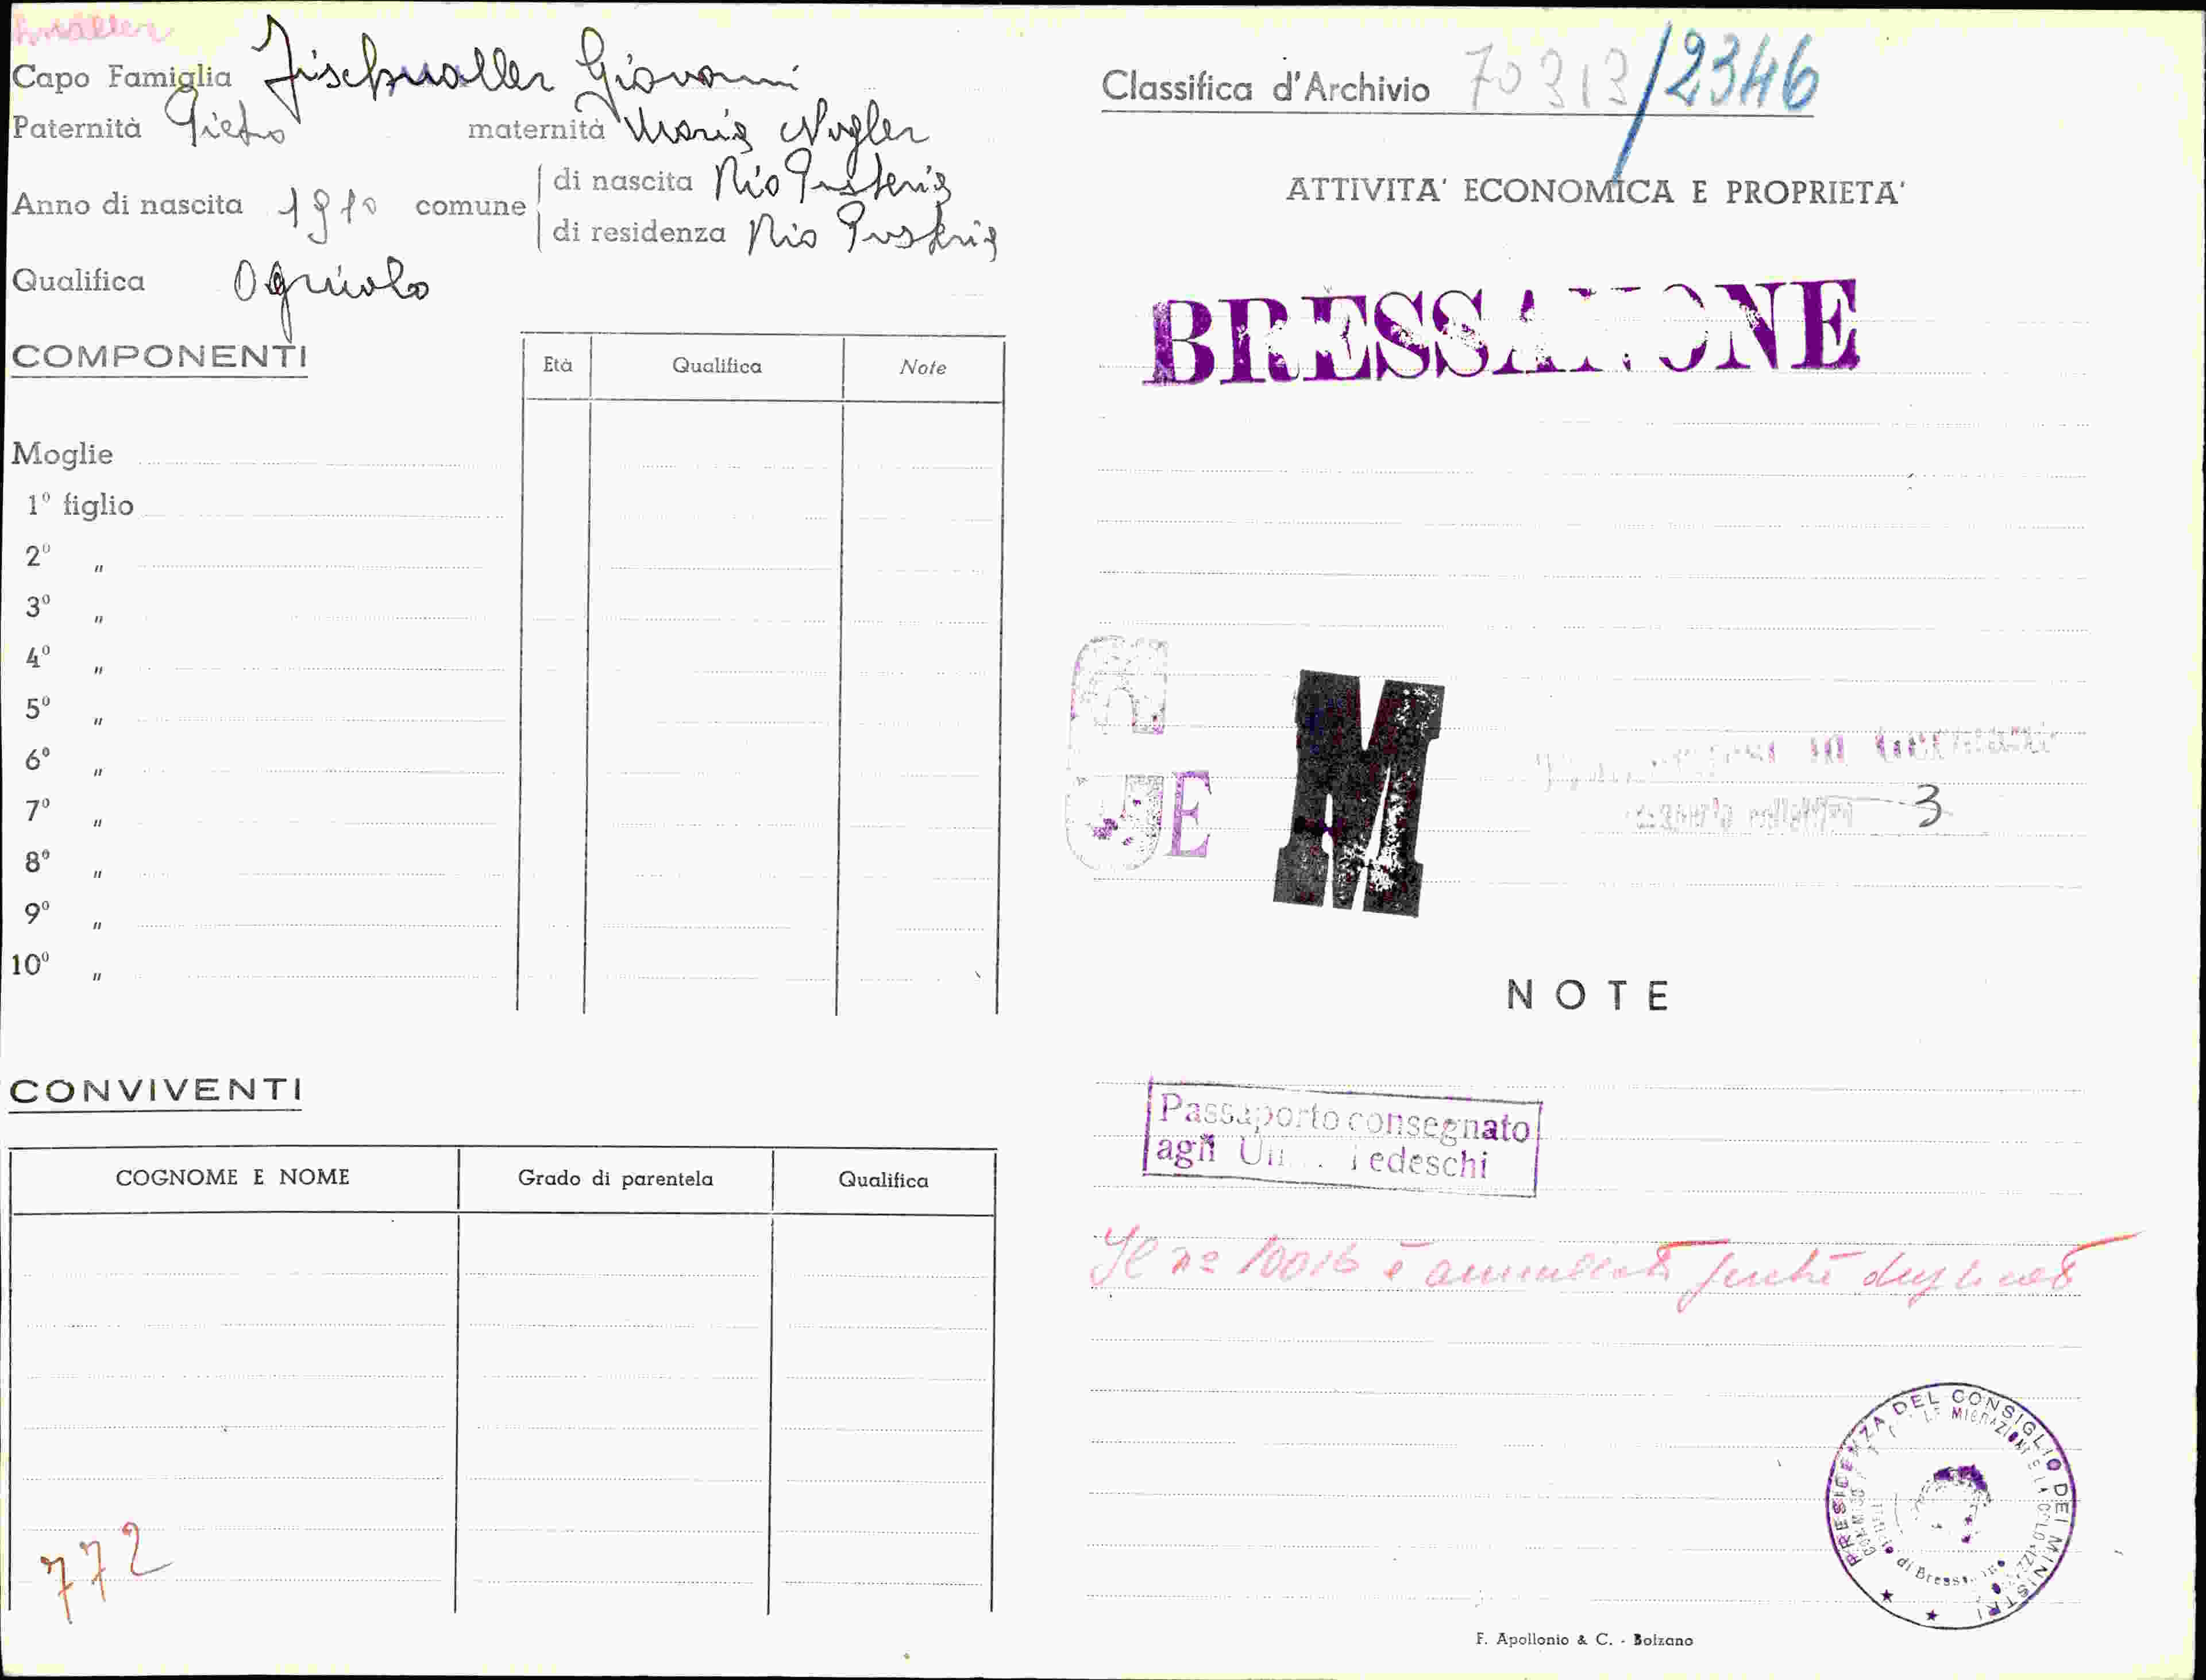 Capo Famiglia Fischnaller Giovanni
Paternità Pietro maternità Maria Nogler
Anno di nascita 1910 comune di nascita Rio Pusteria
di residenza Rio Pusteria
Qualifica Agricolo
COMPONENTI
Età Qualifica Note
Moglie
1° figlio
2° "
3° "
4° "
5° "
6° "
7° "
8° "
9° "
10° "
CONVIVENTI
COGNOME E NOME Grado di parentela Qualifica
772
Classifica d'Archivio 70313/2346
ATTIVITA' ECONOMICA E PROPRIETA'
BRESSANONE
E
M
3
NOTE
Passaporto consegnato
agli Tedeschi
Il n° 10016 è annullato perchè duplicato
PRESIDENZA DEL CONSIGLIO DEI MINISTRI
MIGRAZIONI E LA COLONIZZ
di Bressanone
F. Apollonio & C. - Bolzano